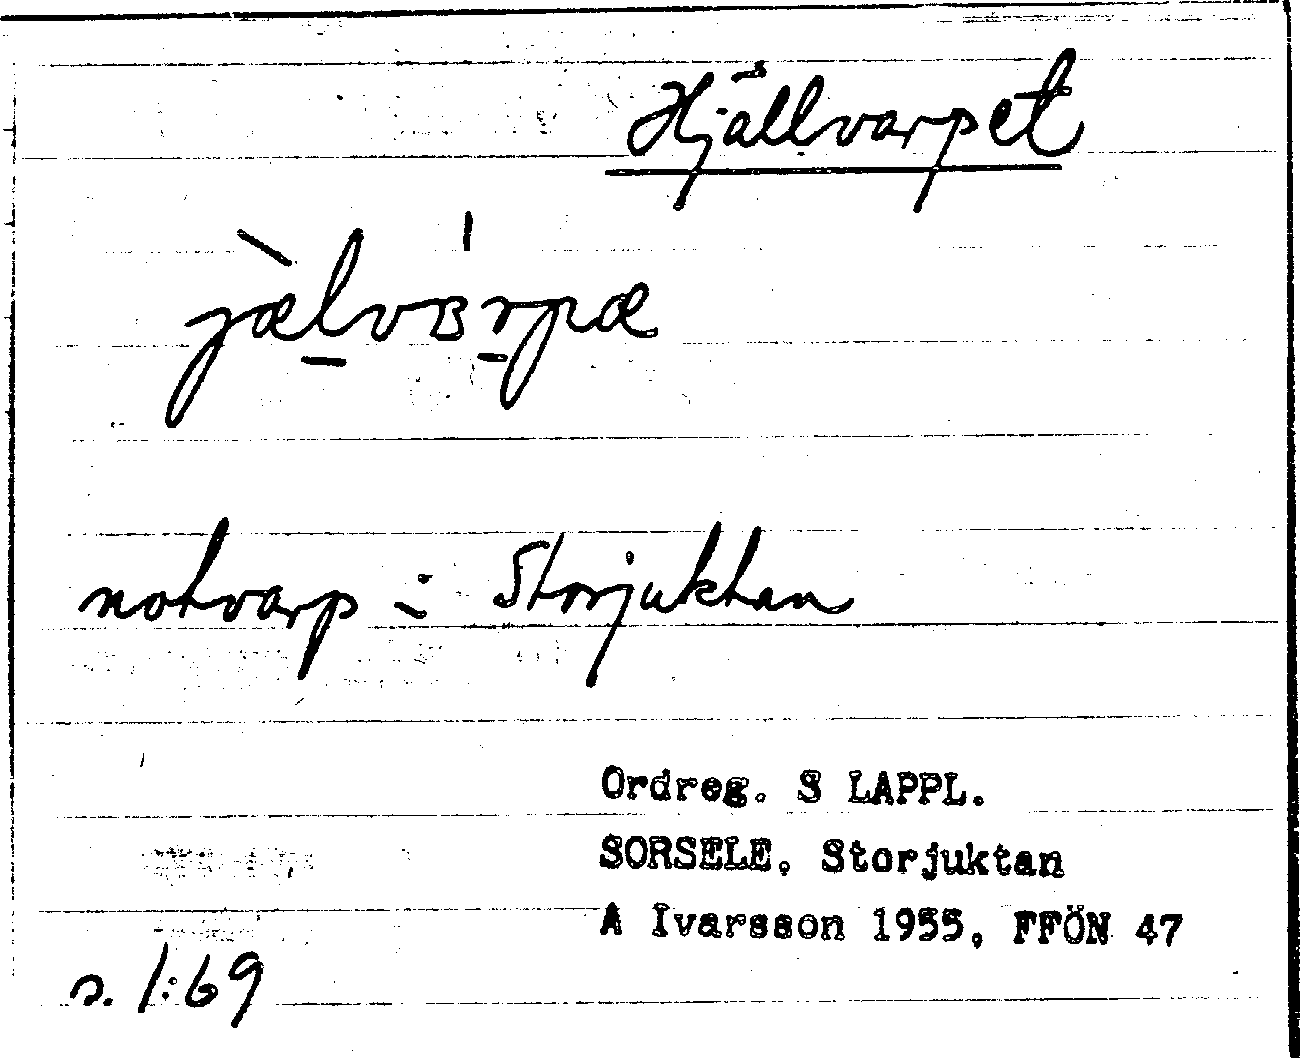 Hjällvarpet
jæ̀lvʙ́rpæ
notvarp i Storjuktan
Ordreg. S LAPPL.
SORSELE, Storjuktan
A Ivarsson 1955, FFÖN 47
s. 1:69